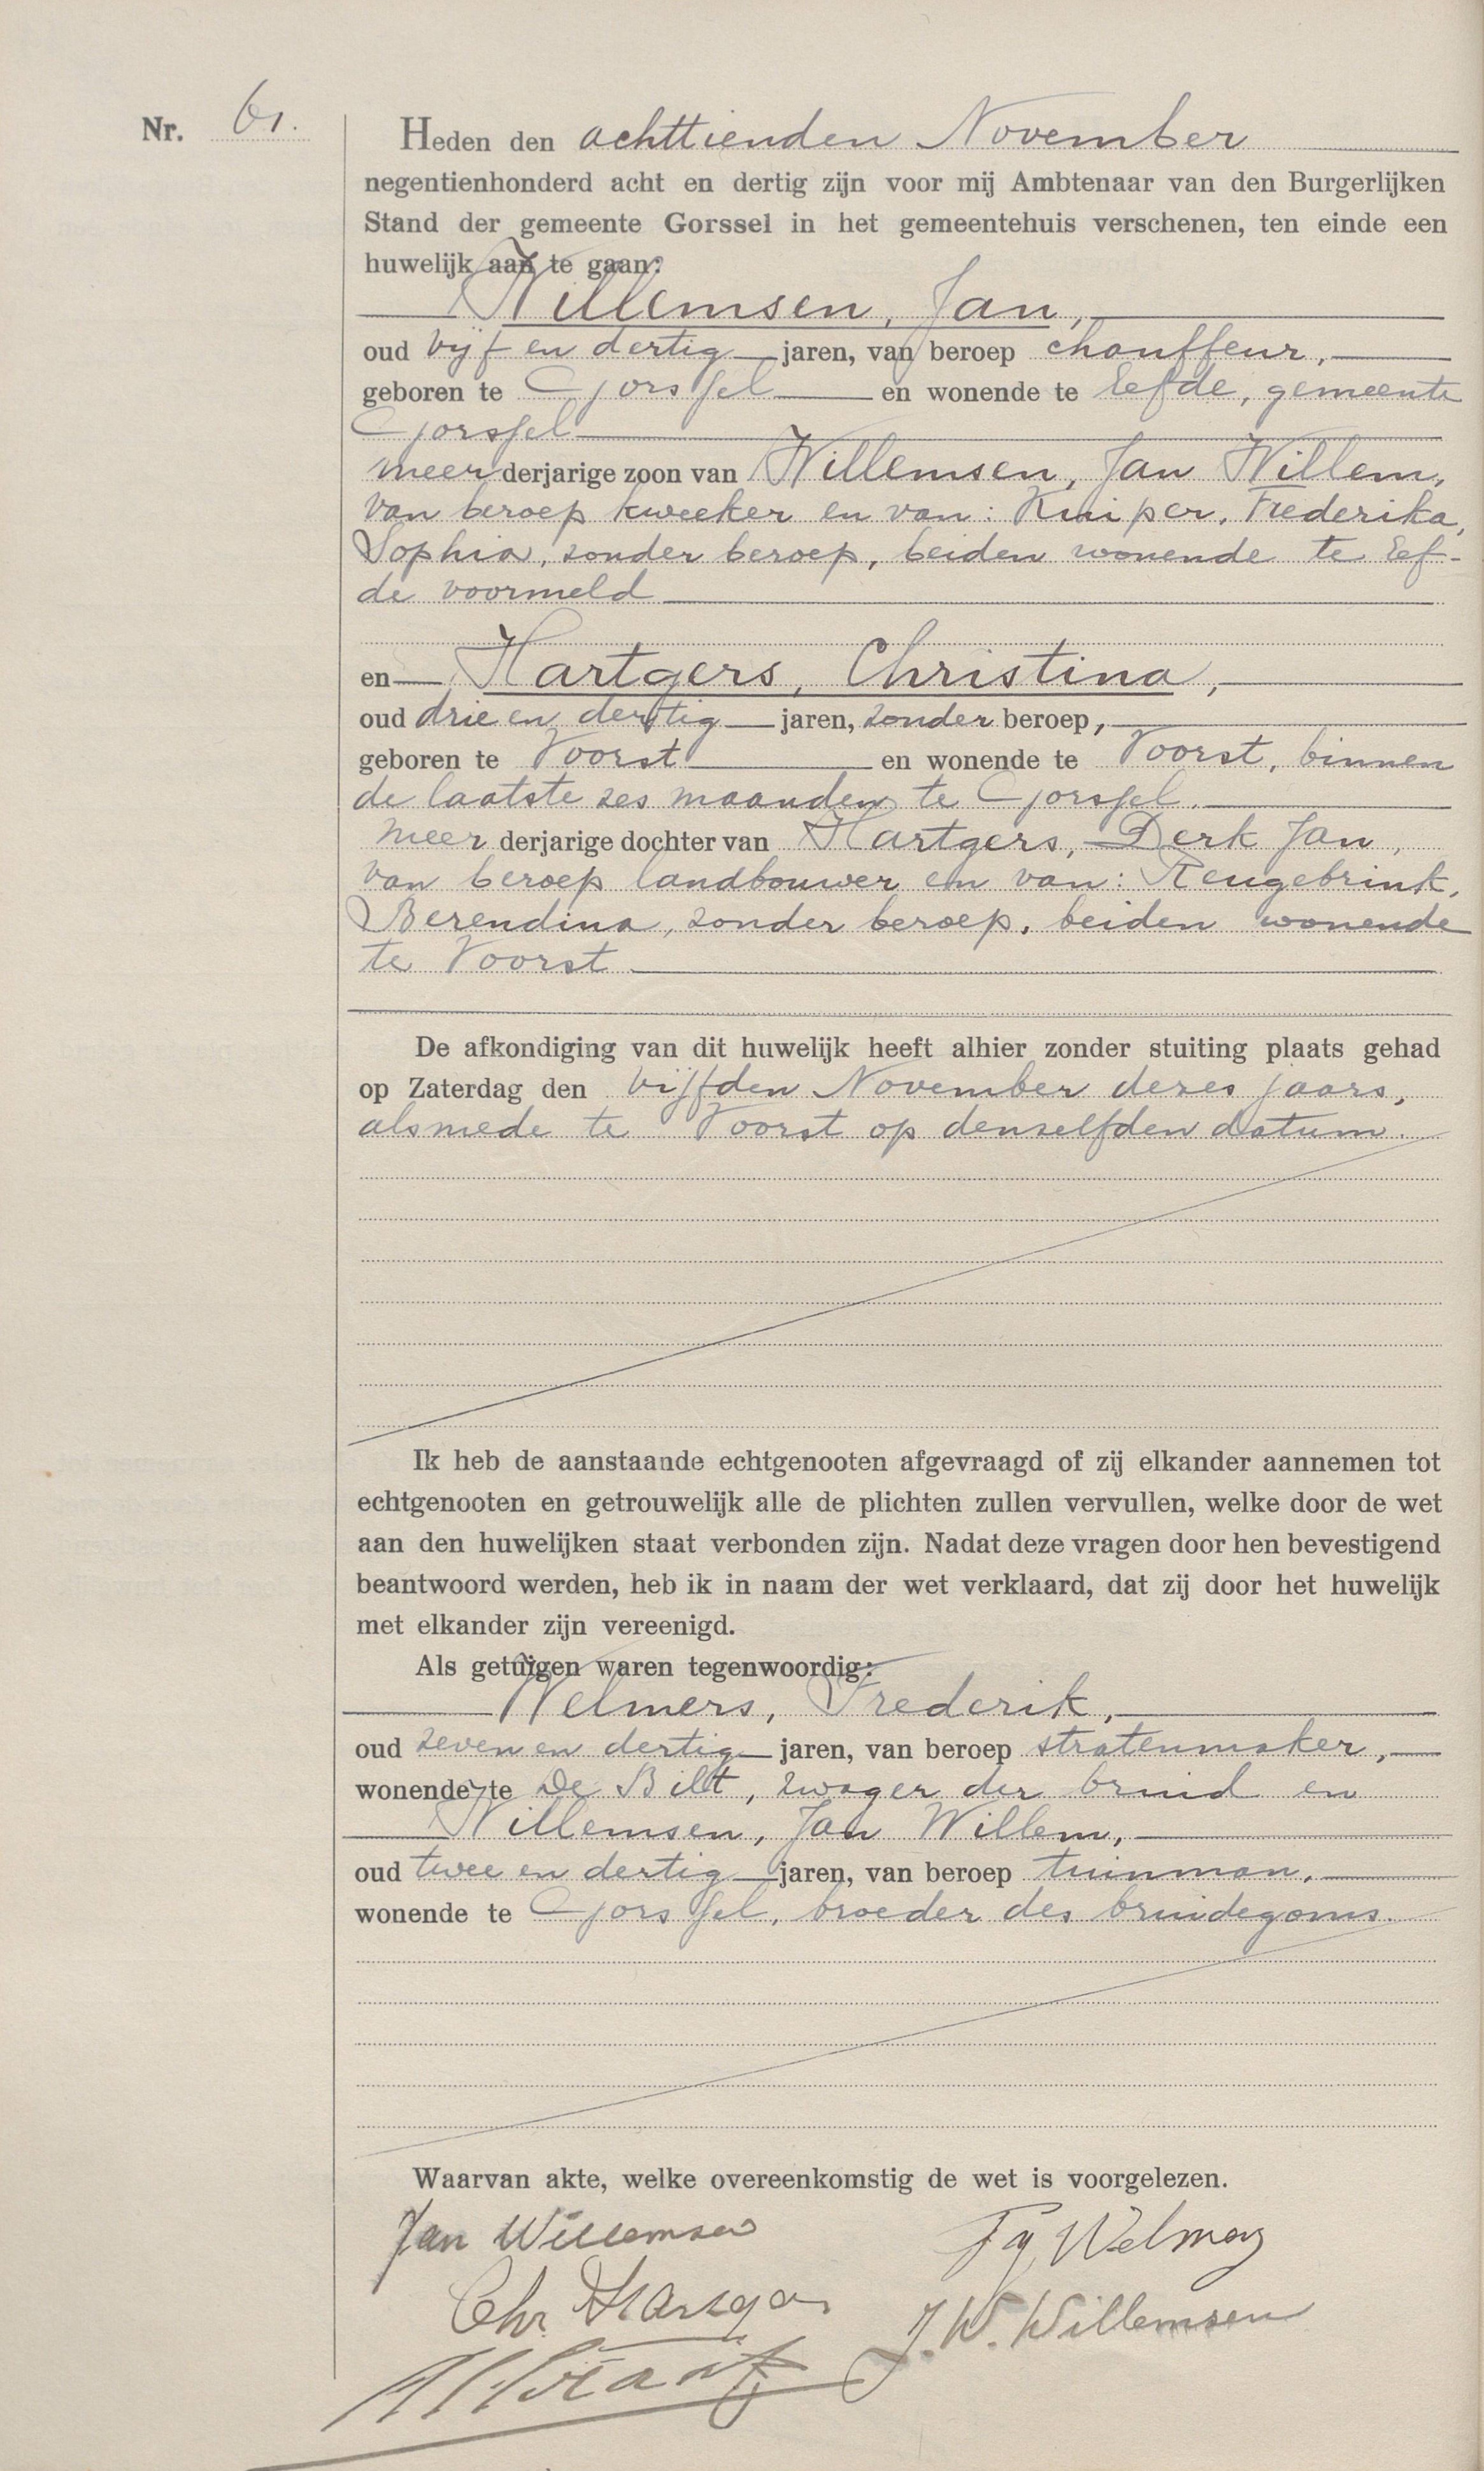 Nr. 61.
Heden den achttienden November
negentienhonderd acht en dertig zijn voor mij Ambtenaar van den Burgerlijken
Stand der gemeente Gorssel in het gemeentehuis verschenen, ten einde een
huwelijk aan te gaan:
Willemsen, Jan,
oud vijf en dertig jaren, van beroep chauffeur,
geboren te Gorssel en wonende te Eefde, gemeente
Gorssel
meerderjarige zoon van Willemsen, Jan Willem,
van beroep kweeker en van: Kuiper, Frederika,
Sophia, zonder beroep, beiden wonende te Eef-
de voormeld
en Hartgers, Christina,
oud drie en dertig jaren, zonder beroep,
geboren te Voorst en wonende te Voorst, binnen
de laatste zes maanden te Gorssel.
meerderjarige dochter van Hartgers, Derk Jan,
van beroep landbouwer en van: Reugebrink,
Berendina, zonder beroep, beiden wonende
te Voorst
De afkondiging van dit huwelijk heeft alhier zonder stuiting plaats gehad
op Zaterdag den vijfden November dezes jaars,
alsmede te Voorst op denzelfden datum.
Ik heb de aanstaande echtgenooten afgevraagd of zij elkander aannemen tot
echtgenooten en getrouwelijk alle de plichten zullen vervullen, welke door de wet
aan den huwelijken staat verbonden zijn. Nadat deze vragen door hen bevestigend
beantwoord werden, heb ik in naam der wet verklaard, dat zij door het huwelijk
met elkander zijn vereenigd.
Als getuigen waren tegenwoordig:
Welmers, Frederik,
oud zeven en dertig jaren, van beroep stratenmaker,
wonende te De Bilt, zwager der bruid en
Willemsen, Jan Willem,
oud twee en dertig jaren, van beroep tuinman,
wonende te Gorssel, broeder des bruidegoms.
Waarvan akte, welke overeenkomstig de wet is voorgelezen.
Jan Willemsen
Chr. Hartgers
J. W. Willemsen